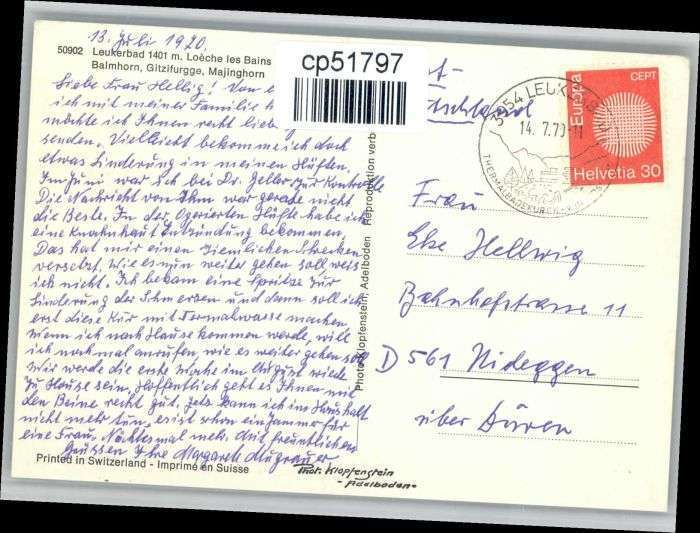 13. Juli 1970.
50902 Leukerbad 1401 m. Loèche les Bains
Balmhorn, Gitzifurgge, Majinghorn
cp51797
Liebe Frau Hellwig! Von
ich mit meiner Familie
möchte ich Ihnen recht lieb
senden. Vielleicht bekomme ich doch
etwas Linderung in meinen Hüften.
Im Juni war ich bei Dr. Zeller zur Kontrolle
Die Nachricht von Ihm war gerade nicht
die Beste. In der Operierten Hüfte habe ich
eine Knochenhaut Entzündung bekommen.
Das hat mir einen Ziemlichen Schrecken
versetzt. Wie es nun weiter gehen soll, weis
ich nicht. Ich bekam eine Spritze Zur
Linderung der Schmerzen und dann soll ich
erst diese Kür mit Termalwasse machen.
Wenn ich nach Hause kommen werde, will
ich nochmal anrufen, wie es weiter gehen soll
Wir werde die erste Woche im August wiede
Zu Hause sein. Hoffentlich geht es Ihnen mit
den Beine recht gut. Jetz kann ich im Haushalt
nicht mehr tun, es ist schon ein Jammer für
eine Frau. Nächstesmal mehr. Mit freundlichen
Grüssen Ihre Margarete
Printed in Switzerland - Imprimé en Suisse
Photo Klopfenstein, Adelboden Reproduktion verb
Phot. Klopfenstein
- Adelboden -
t-
utschland
3954 LEUKERBAD
14. 7.70-11
THERMALBADEKUREN
Europa
CEPT
Helvetia 30
Frau
Else Hellwig
Bahnhofstrasse 11
D 561 Nideggen
über Düren